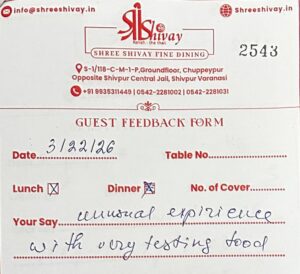 info@shreeshivay.com
Shreeshivay.in
Shivay
SHREE SHIVAY FINE DINING
2543
S-1/118-C-M-1-P,Groundfloor, Chuppeypur
Opposite Shivpur Central Jail, Shivpur Varanasi
+91 9935311449 | 0542-2281002 | 0542-2281031
GUEST FEEDBACK FORM
Date 3/22/26 Table No.
Lunch Dinner No. of Cover
Your Say unusual expirience
with very testing food